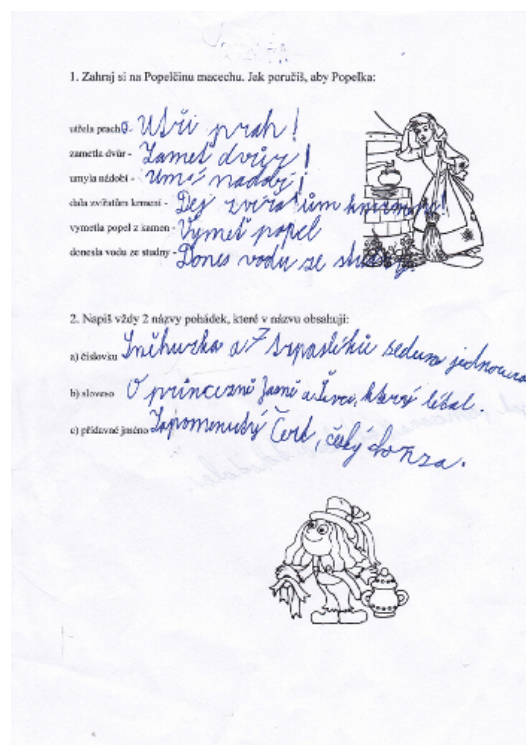 1. Zahraj si na Popelčinu macechu. Jak poručíš, aby Popelka:
utřela prach - Utři prah!
zametla dvůr - Zameť dvůr!
umyla nádobí - Umej nádobí!
dala zvířatům krmení - Dej zvířatům
vymetla popel z kamen - Vymeť popel
donesla vodu ze studny - Dones vodu ze studny
2. Napiš vždy 2 názvy pohádek, které v názvu obsahují:
a) číslovku Sněhurka a 7 trpaslíků sedum
b) sloveso O princezně Jasně a Ševci, který létal.
c) přídavné jméno Zapomenutý Čert, český honza.